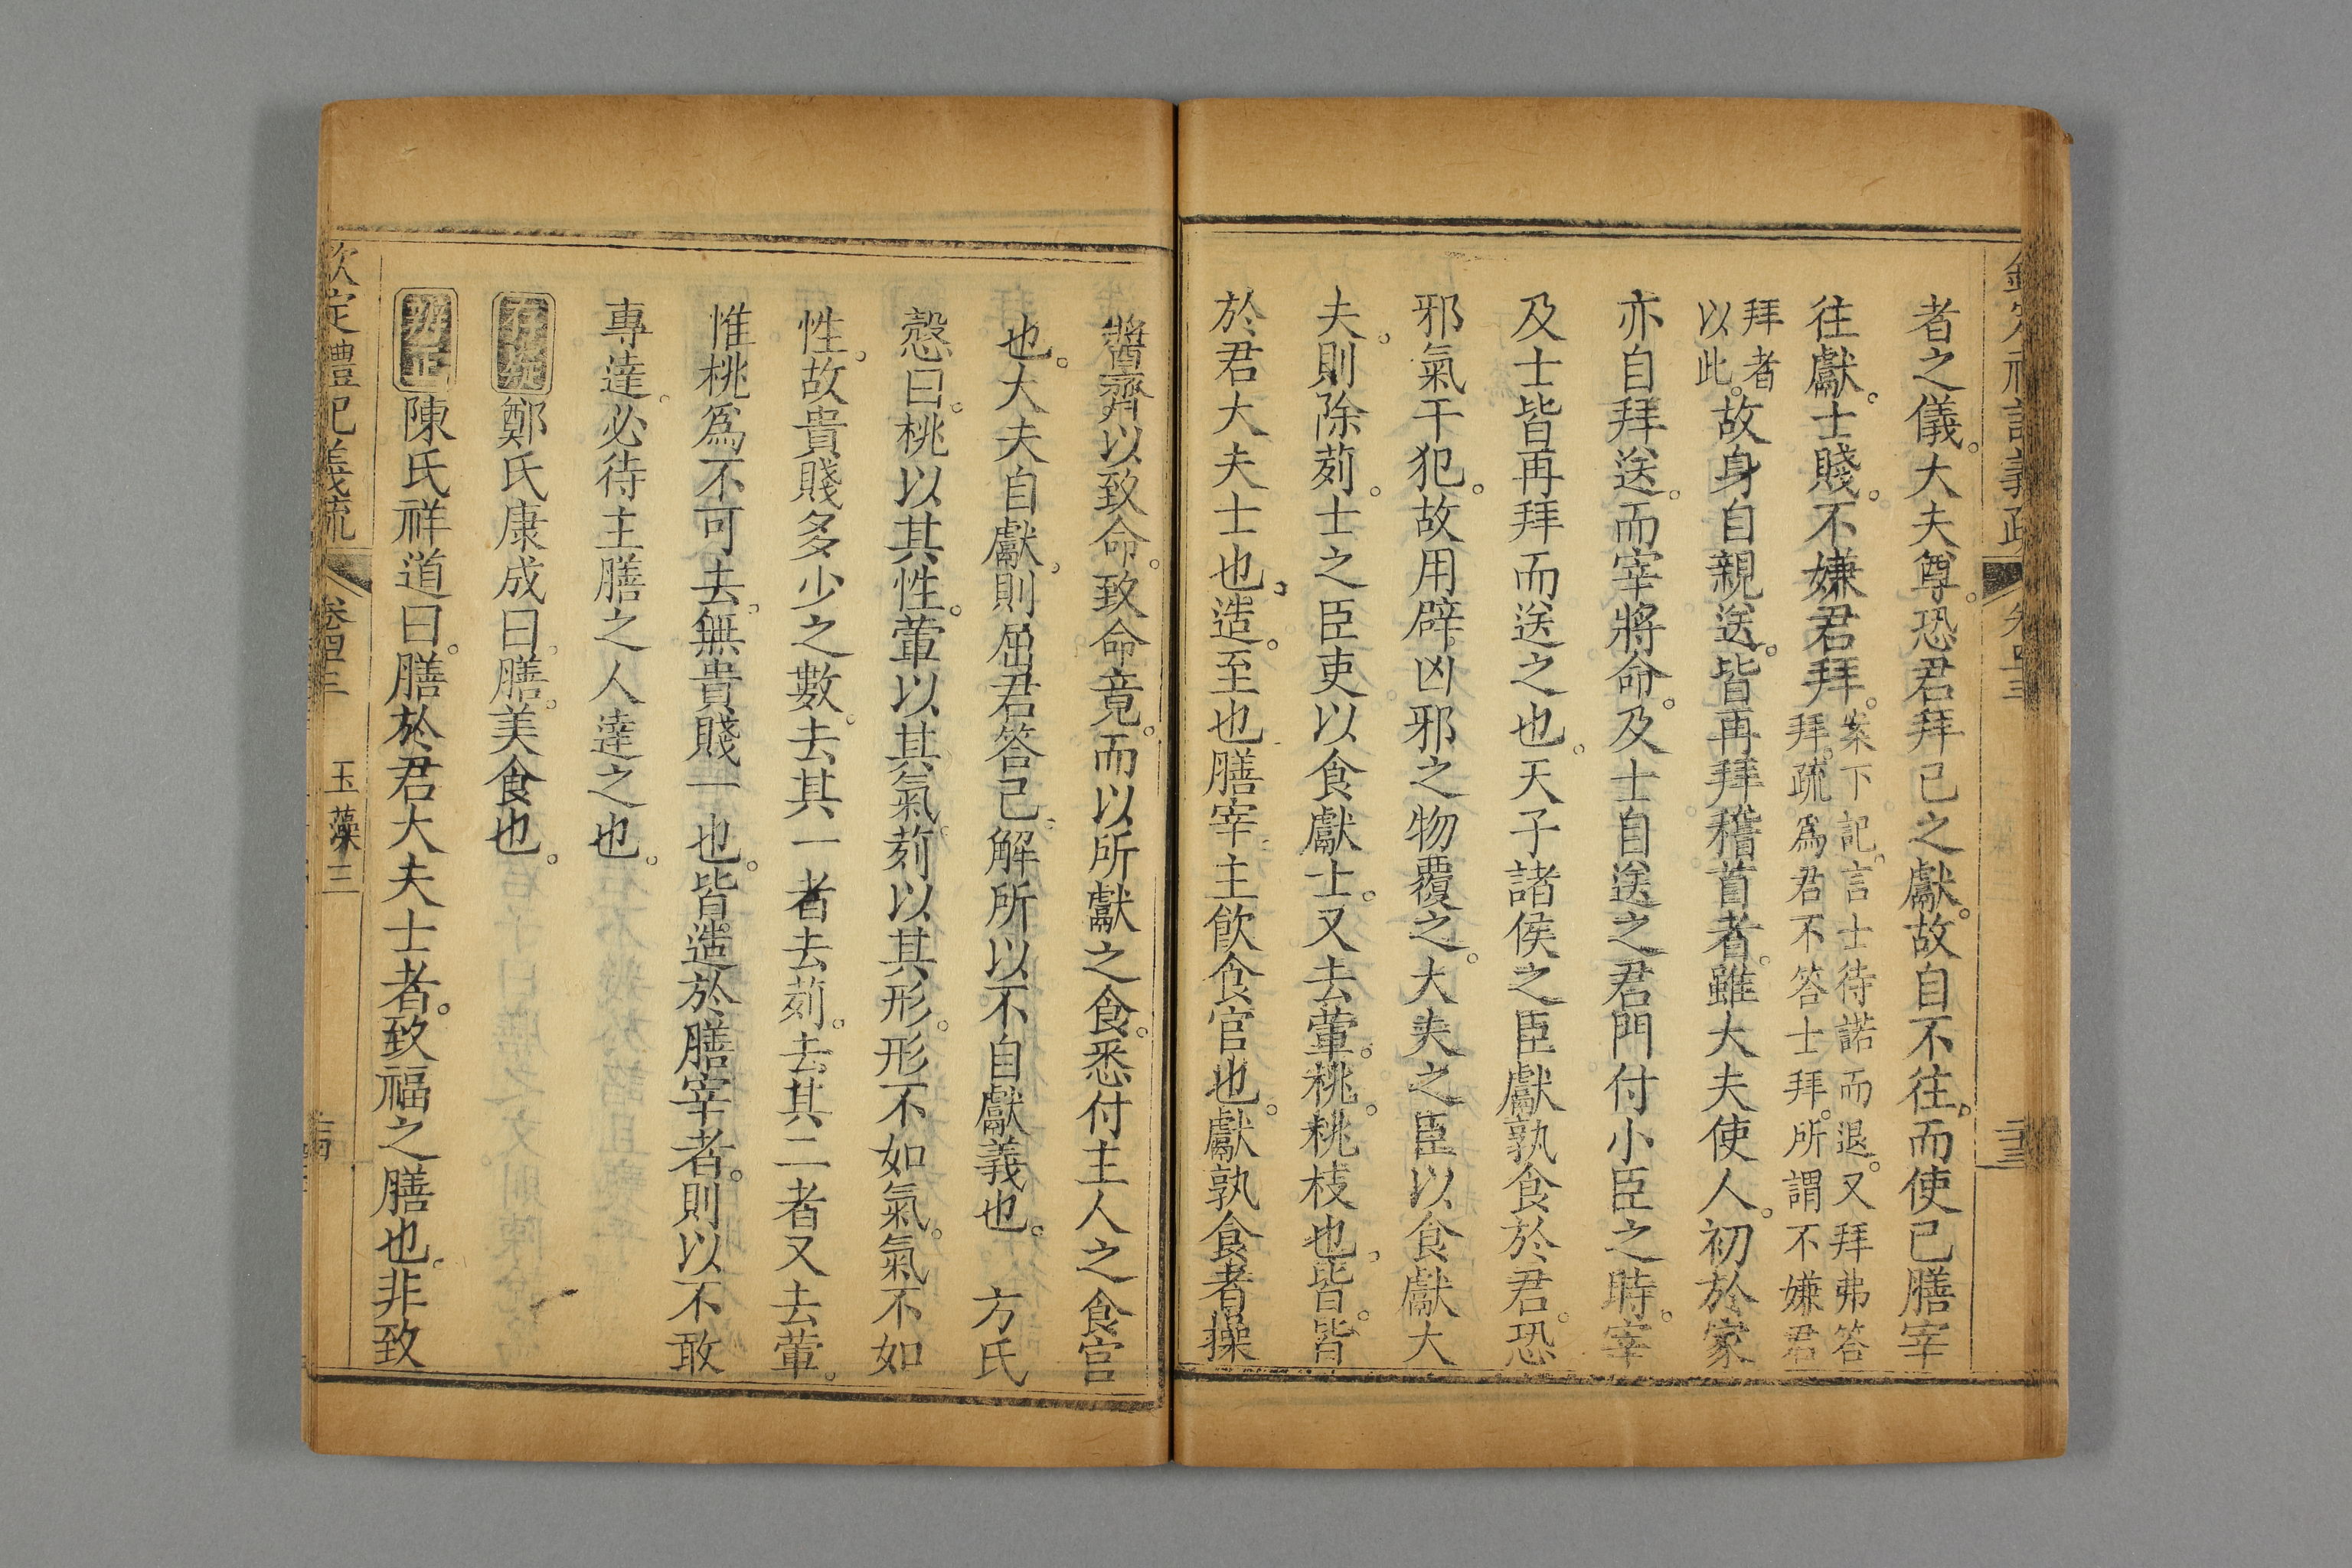 者之儀。大夫尊。恐君拜己之獻。故自不往。而使己膳宰
往獻。士賤。不嫌君拜。案下記言士待諾而退。又拜弗答
拜。疏為君不答士拜。所謂不嫌君
拜者
以此。故身自親送。皆再拜稽首者。雖大夫使人。初於家
亦自拜送。而宰將命。及士自送之君門付小臣之時。宰
及士皆再拜而送之也。天子諸侯之臣獻孰食於君。恐
邪氣干犯。故用辟凶邪之物覆之。大夫之臣以食獻大
夫。則除茢。士之臣吏以食獻士。又去葷。桃。桃枝也。皆。皆
於君大夫士也。造。至也膳宰。主飲食官也。獻孰食者操
醬齊以致命。致命竟。而以所獻之食。悉付主人之食官
也。大夫自獻。則屈君答己。解所以不自獻義也。 方氏
慤曰。桃以其性。葷以其氣。茢以其形。形不如氣。氣不如
性。故貴賤多少之數。去其一者去茢。去其二者又去葷。
惟桃為不可去。無貴賤一也。皆造於膳宰者。則以不敢
專達。必待主膳之人達之也。
存疑 鄭氏康成曰。膳。美食也。
辨正 陳氏祥道曰。膳於君大夫士者。致福之膳也。非致
欽定禮記義疏 卷四十三 玉藻三